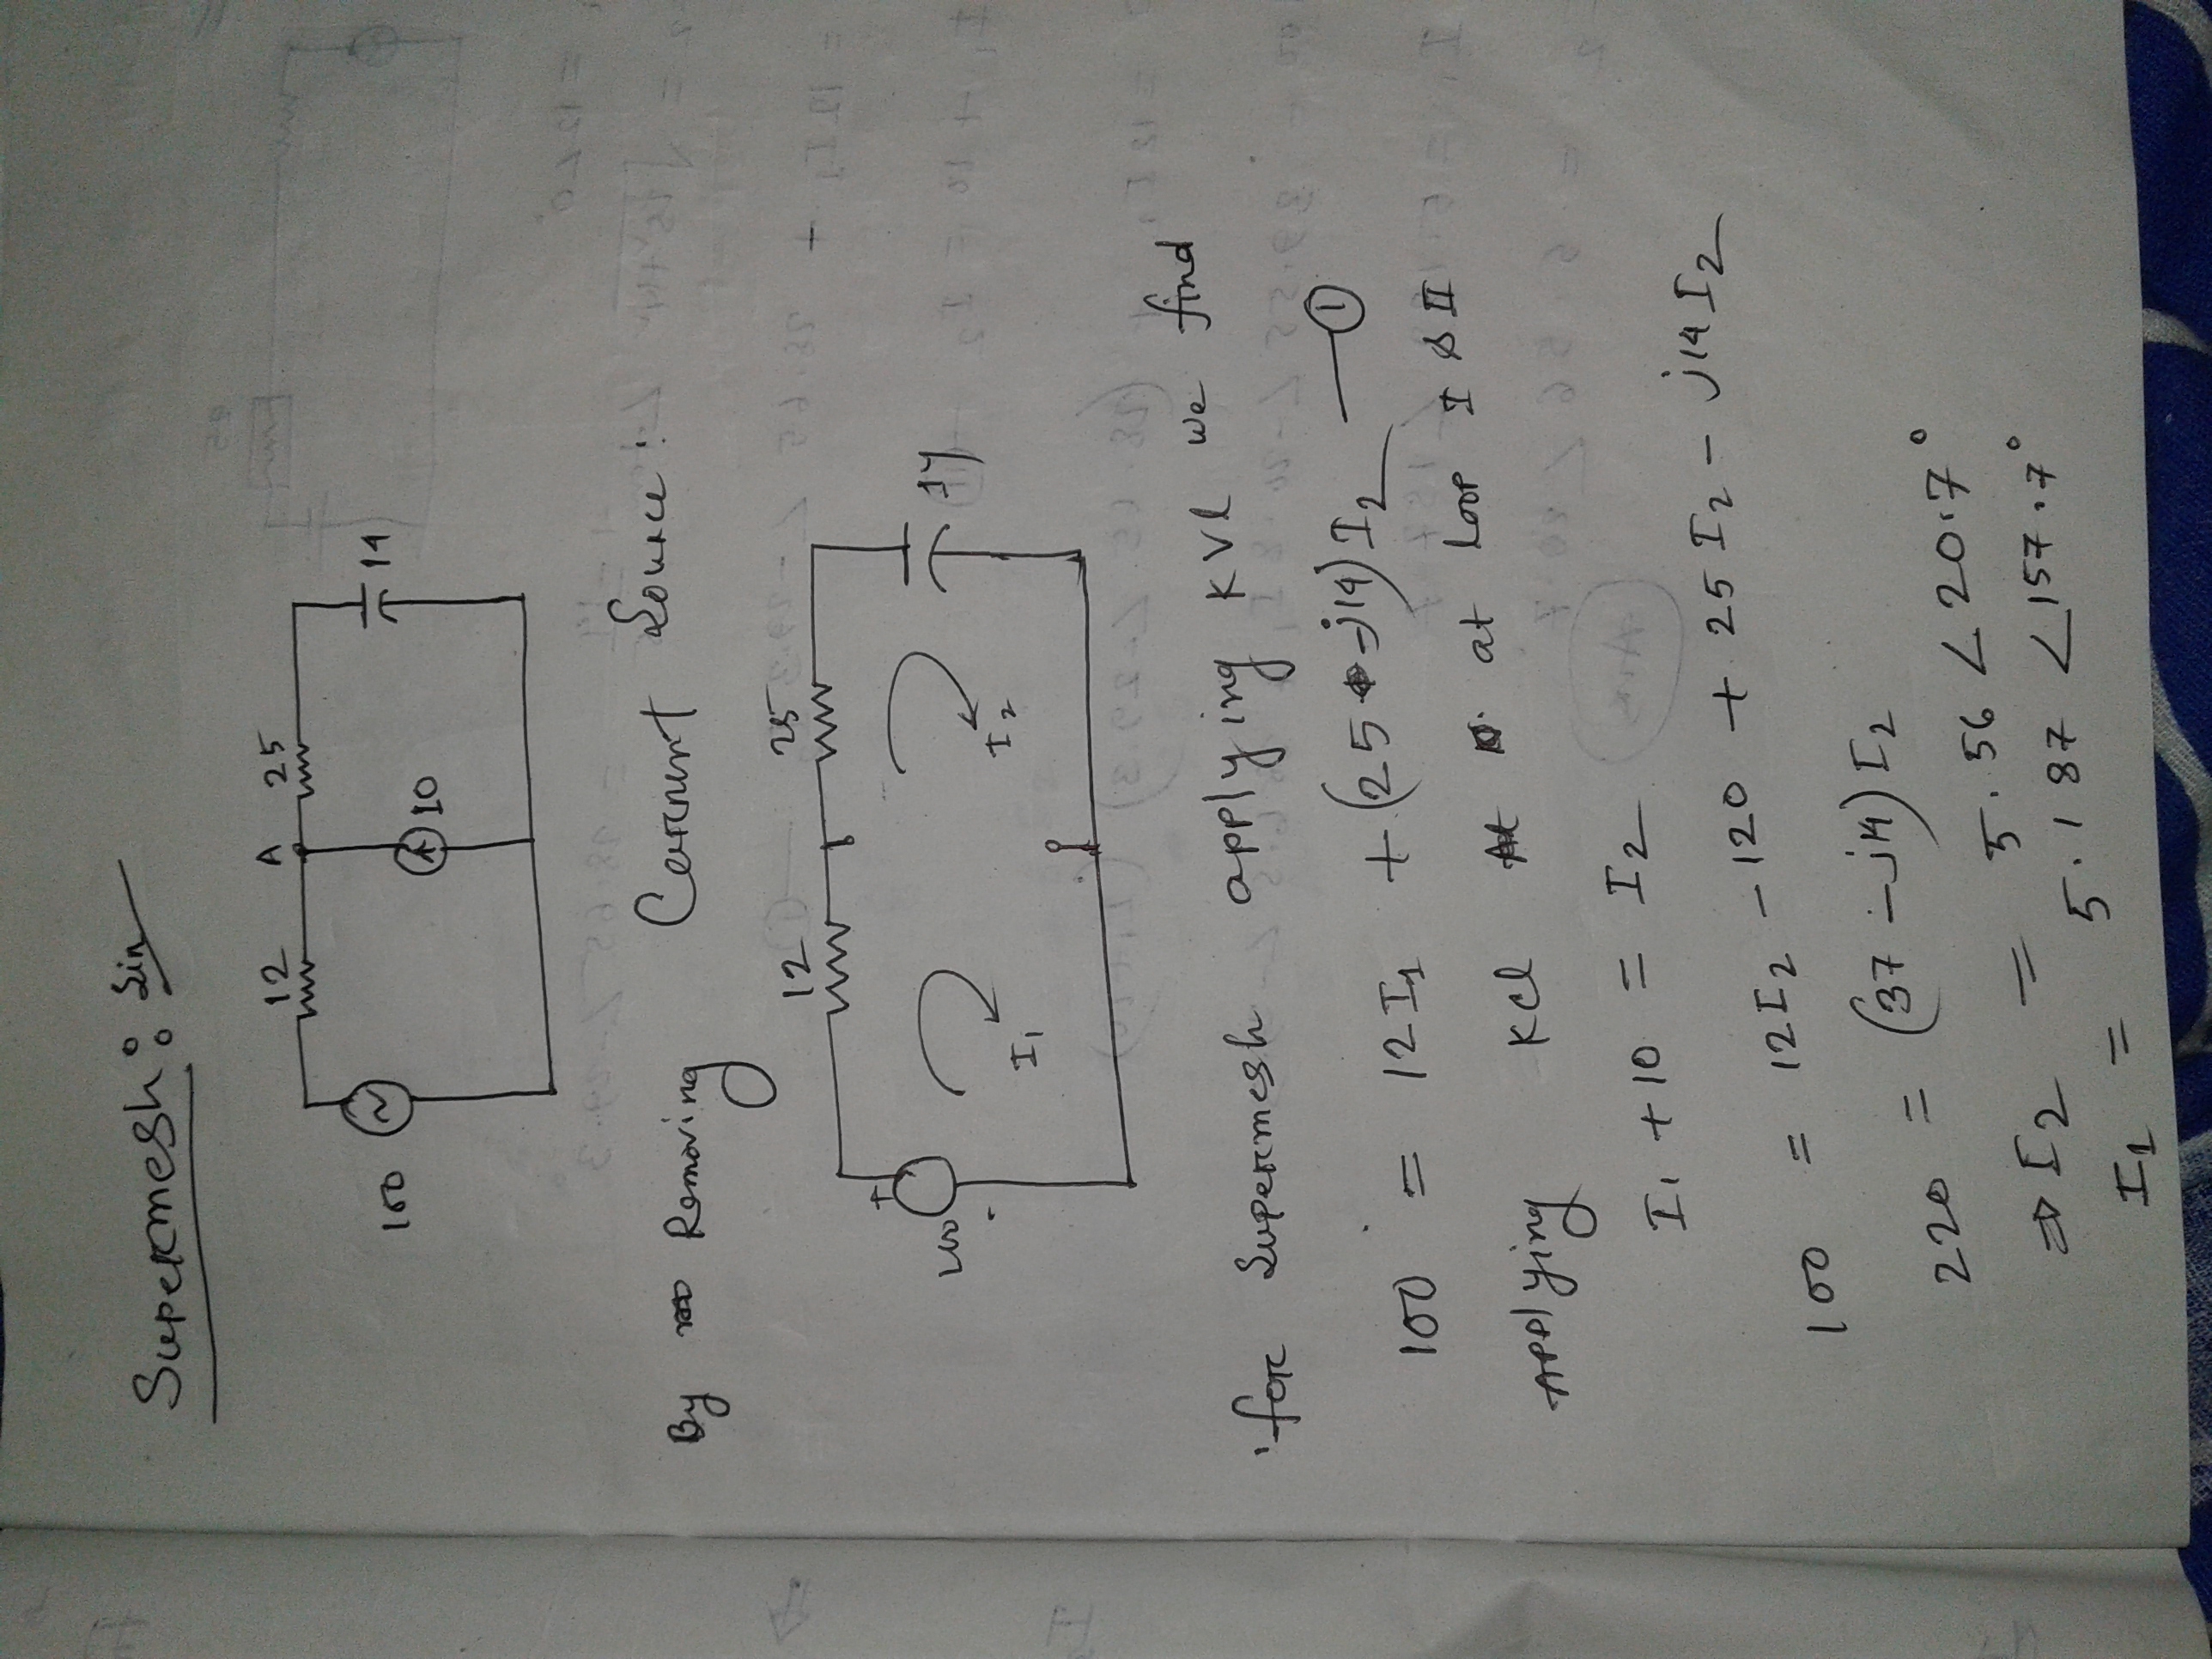 Supermesh: Sin
12 A 25
100
14
10
By Removing Current Source:
12 25
+
100
14
-
I₁ I₂
for Supermesh applying KVl we find
100 = 12I₁ + (25 -j14) I₂ —①
Applying Kcl at Loop I & II
I₁ + 10 = I₂
100 = 12I₂ - 120 + 25 I₂ - j14 I₂
220 = (37 - j14) I₂
⇒ I₂ = 5.56 ∠20.7°
I₁ = 5.187 ∠157.7°